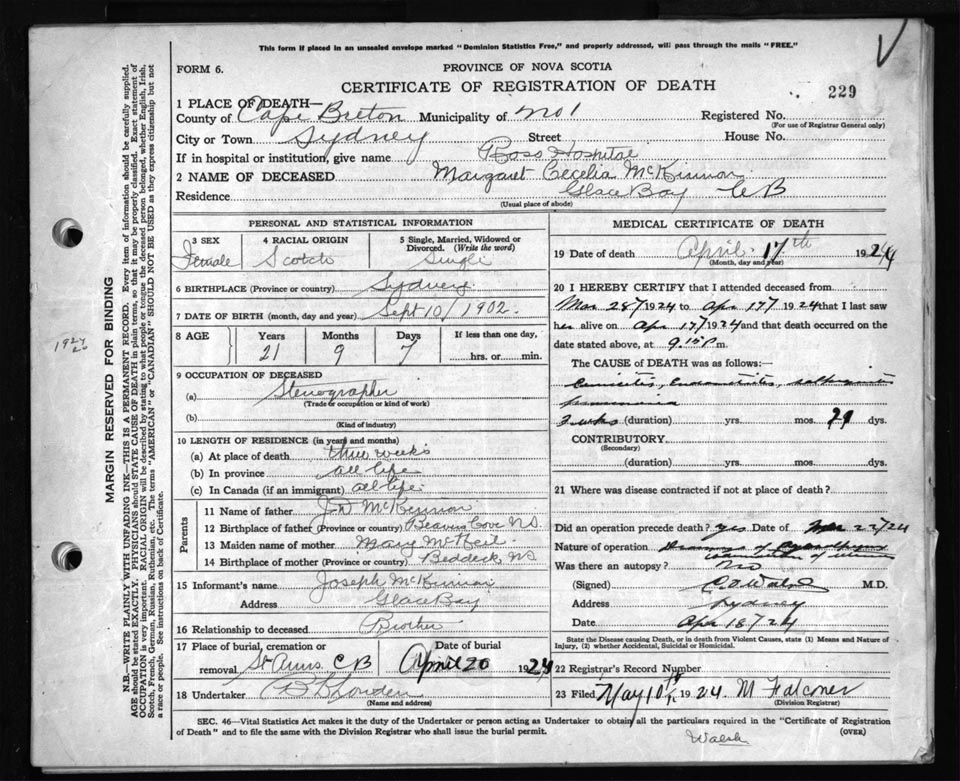 This form if placed in an unsealed envelope marked "Dominion Statistics Free," and properly addressed, will pass through the mails "FREE."
FORM 6.
PROVINCE OF NOVA SCOTIA
CERTIFICATE OF REGISTRATION OF DEATH
229
1 PLACE OF DEATH—
County of Cape Breton Municipality of No 1 Registered No.
(For use of Registrar General only)
City or Town Sydney Street House No.
If in hospital or institution, give name Ross Hospital
2 NAME OF DECEASED Margaret Cecelia McKinnon
Residence Glace Bay CB
(Usual place of abode)
PERSONAL AND STATISTICAL INFORMATION
3 SEX Female
4 RACIAL ORIGIN Scotch
5 Single, Married, Widowed or Divorced. (Write the word) Single
6 BIRTHPLACE (Province or country) Sydney
7 DATE OF BIRTH (month, day and year) Sept 10/1902.
8 AGE Years Months Days If less than one day,
21 9 7 hrs. or min.
9 OCCUPATION OF DECEASED
(a) Stenographer
(Trade or occupation or kind of work)
(b)
(Kind of industry)
10 LENGTH OF RESIDENCE (in years and months)
(a) At place of death three weeks
(b) In province all life
(c) In Canada (if an immigrant) all life
Parents
11 Name of father J.D McKinnon
12 Birthplace of father (Province or country) Beavers Cove N.S.
13 Maiden name of mother Mary McNeil
14 Birthplace of mother (Province or country) Beddeck NS
15 Informant's name Joseph McKinnon
Address Glace Bay
16 Relationship to deceased Brother
17 Place of burial, cremation or removal St Anns CB Date of burial April 20 1924
18 Undertaker
(Name and address)
MEDICAL CERTIFICATE OF DEATH
19 Date of death April 17th 1924
(Month, day and year)
20 I HEREBY CERTIFY that I attended deceased from
Mar 28/1924 to Apr 17/ 1924 that I last saw
her alive on Apr 17/1924 and that death occurred on
date stated above, at 9.15 P m.
The CAUSE of DEATH was as follows:—
pneumonia
3 wks (duration) yrs. mos. 21 dys.
CONTRIBUTORY
(Secondary)
(duration) yrs. mos. dys.
21 Where was disease contracted if not at place of death?
Did an operation precede death? yes Date of Mar 22/24
Nature of operation
Was there an autopsy? No
(Signed) M.D.
Address Sydney
Date Apr 18/24
State the Disease causing Death, or in death from Violent Causes, state (1) Means and Nature of Injury, (2) whether Accidental, Suicidal or Homicidal.
22 Registrar's Record Number
23 Filed May 10th 1924. M Falconer
(Division Registrar)
SEC. 46—Vital Statistics Act makes it the duty of the Undertaker or person acting as Undertaker to obtain all the particulars required in the "Certificate of Registration
of Death" and to file the same with the Division Registrar who shall issue the burial permit. (OVER)
Walsh
MARGIN RESERVED FOR BINDING
N.B.—WRITE PLAINLY WITH UNFADING INK—THIS IS A PERMANENT RECORD. Every item of information should be carefully supplied.
AGE should be stated EXACTLY. PHYSICIANS should STATE CAUSE OF DEATH in plain terms, so that it may be properly classified. Exact statement of
OCCUPATION is very important. RACIAL ORIGIN will be described by stating to what people or tongue the deceased person belonged, whether English, Irish,
Scotch, French, German, Russian, Ruthenian, etc. The terms "AMERICAN" or "CANADIAN" SHOULD NOT BE USED as they express citizenship but not
a race or people. See instructions on back of Certificate.